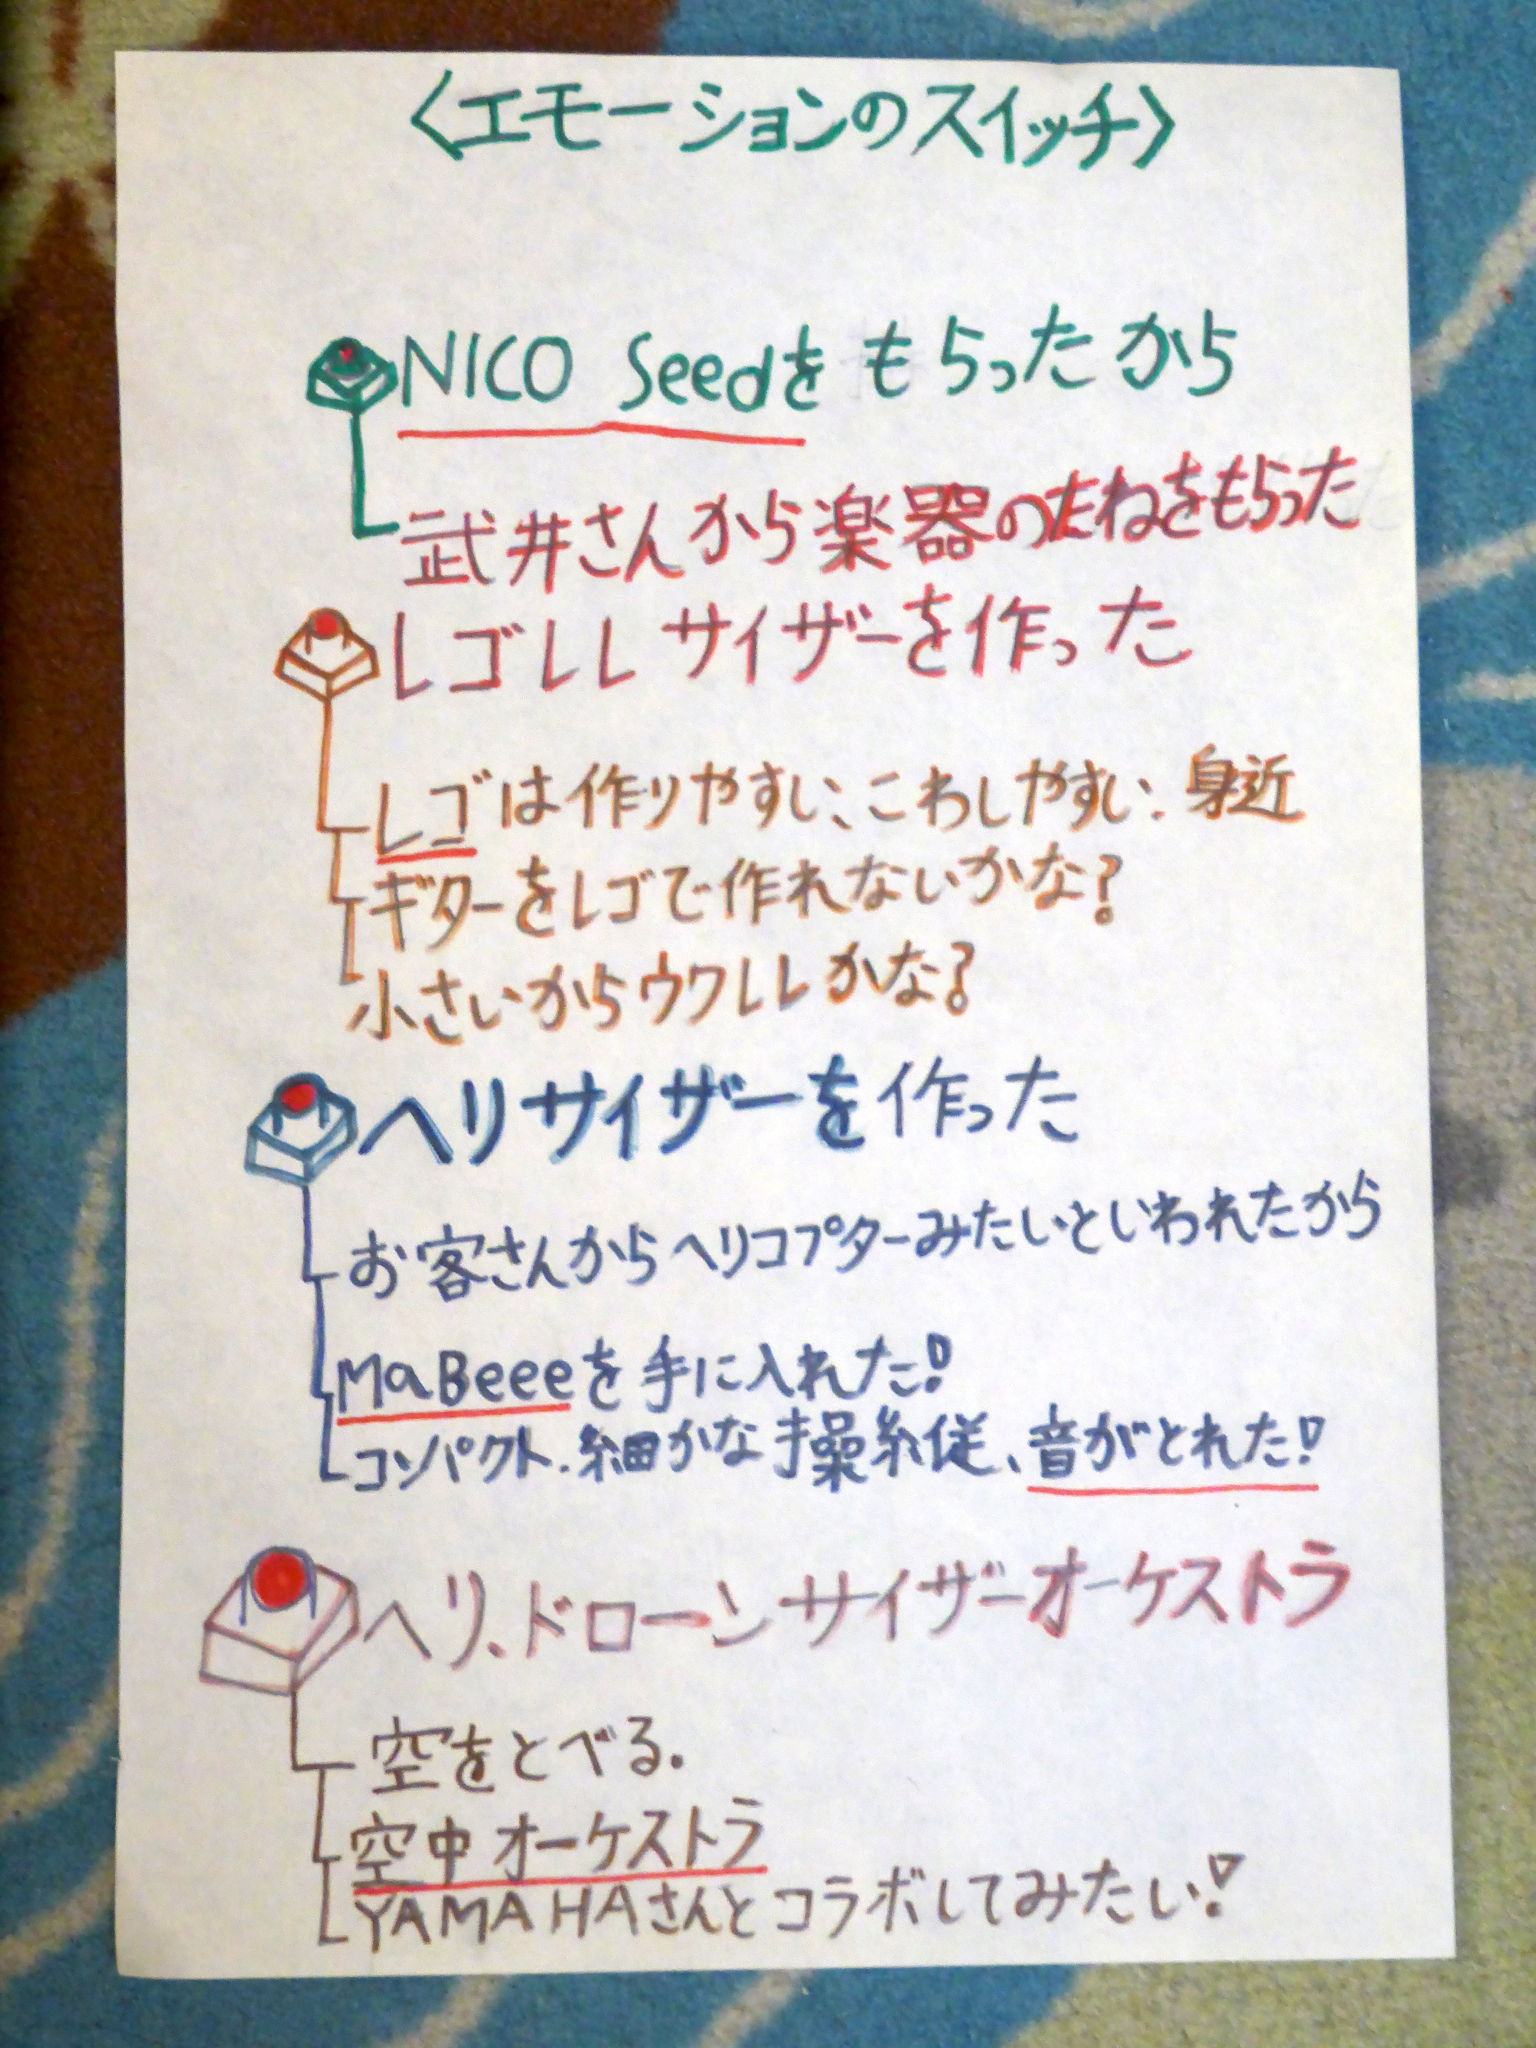 〈エモーションのスイッチ〉
NICO Seedをもらったから
武井さんから楽器のたねをもらった
レゴレレサイザーを作った
レゴは作りやすい、こわしやすい、身近
ギターをレゴで作れないかな？
小さいからウクレレかな？
ヘリサイザーを作った
お客さんからヘリコプターみたいといわれたから
MaBeeeを手に入れた！
コンパクト、細かな操糸従、音がとれた！
ヘリ、ドローンサイザーオーケストラ
空をとべる。
空中オーケストラ
YAMAHAさんとコラボしてみたい！